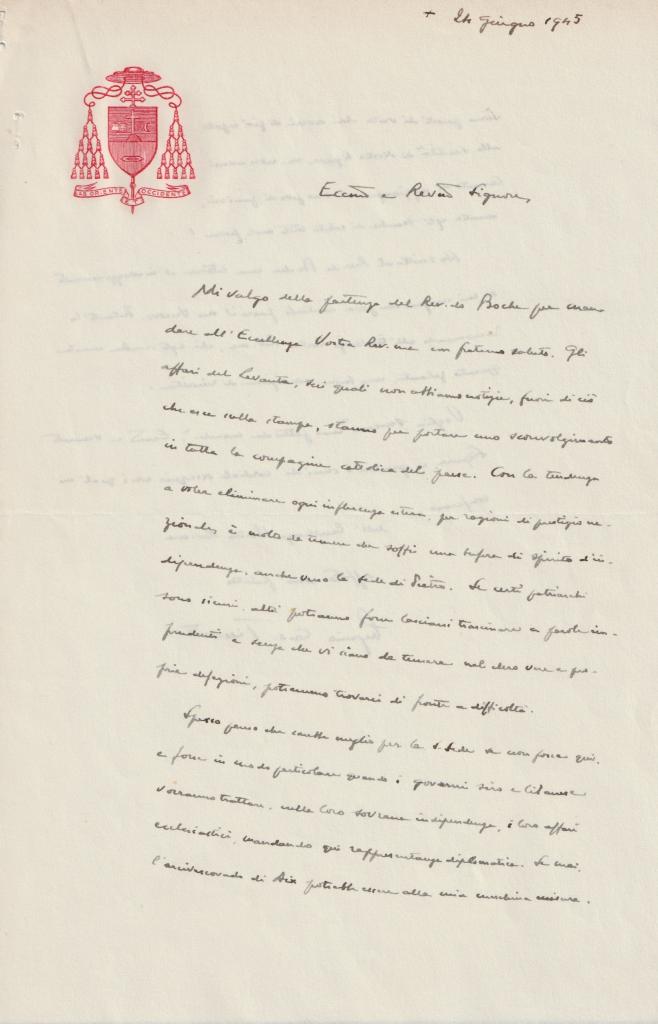 + 24 Giugno 1945
AB ORIENTE OCCIDENTE
Eccmo e Revmo Signore,
Mi valgo della partenza del Rev. do Boche per man-
dare all'Eccellenza Vostra Rev.ma un fraterno saluto. Gli
affari del Levante, sui quali non abbiamo notizie, fuori di ciò
che esce sulla stampa, stanno per portare uno sconvolgimento
in tutta la compagine cattolica del paese. Con la tendenza
a voler eliminare ogni influenza estera, per ragioni di prestigio na-
zionale, è molto da temere che soffi una bufera di spirito d'in-
dipendenza, anche verso la Sede di Pietro. Se certi patriarchi
sono sicuri, altri potranno forse lasciarsi trascinare a parole im-
prudenti e senza che vi siano da temere nel clero vere e pro-
prie defezioni, potremmo trovarci di fronte a difficoltà.
Spesso penso che sarebbe meglio per la S. Sede se non fossi qui,
e forse in modo particolare quando i governi siro e libanese
vorranno trattare, nella loro sovrana indipendenza, i loro affari
ecclesiastici, mandando qui rappresentanze diplomatiche. Se mai,
l'arcivescovado di Aix potrebbe essere alla mia meschina misura.